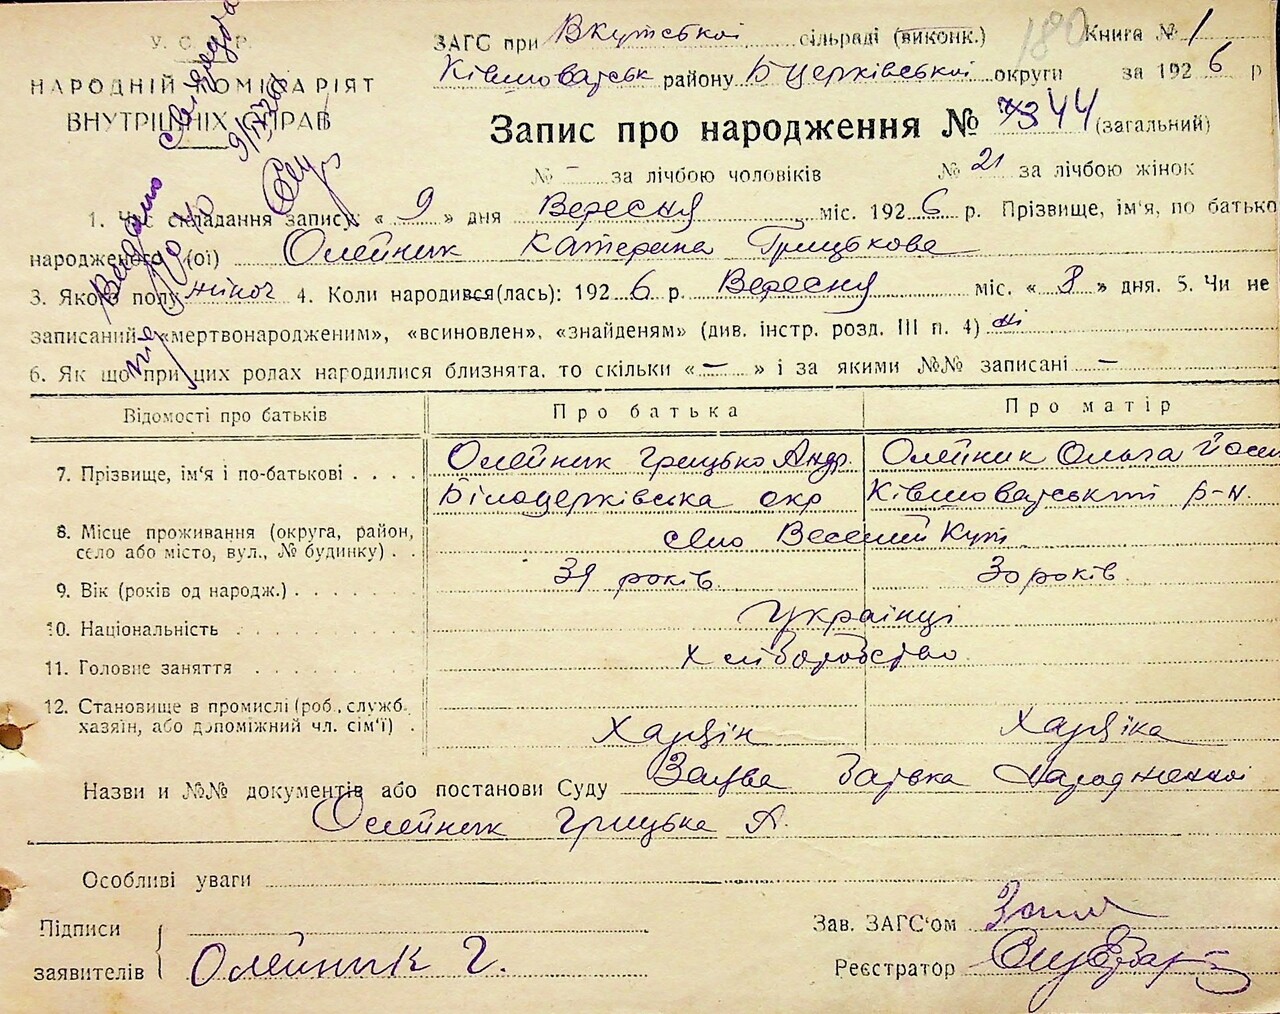 У. С. Р. Р.
НАРОДНІЙ КОМІСАРІЯТ
ВНУТРІШНІХ СПРАВ
ЗАГС при Вкутській сільраді (виконк.) 180 Книга № 1
Ківшоватськ району Б церківської округи за 1926 р
Запис про народження № 344 (загальний)
№ – за лічбою чоловіків № 21 за лічбою жінок
Видано
1. Час складання запису: « 9 » дня Вересня міс. 1926 р. Прізвище, ім'я, по батько
народженого (ої) Олейник Катерина Грицькова
3. Якого полу жіноч 4. Коли народився(лась): 1926 р. Вересня міс. « 8 » дня. 5. Чи не
записаний «мертвонародженим», «всиновлен», «знайденям» (див. інстр. розд. III п. 4) ні
6. Як що при цих родах народилися близнята, то скільки « – » і за якими №№ записані –
Відомості про батьків Про батька Про матір
7. Прізвище, ім'я і по-батькові . . . . Олейник Грицько Андр. Олейник Ольга Йоси
Білоцерківська окр Ківшоватський р-н.
8. Місце проживання (округа, район,
село або місто, вул., № будинку) . . село Веселий Кут
9. Вік (років од народж.) . . . . . . . 39 років 30 років
10. Національність . . . . . . . . . Українці
11. Головне заняття . . . . . . . . Хліборобство
12. Становище в промислі (роб., служб.
хазяїн, або допоміжний чл. сім'ї) . Хазяїн Хазяйка
Назви и №№ документів або постанови Суду Заява батька народженної
Олейник Грицька А.
Особливі уваги
Підписи
заявителів Олейник Г.
Зав. ЗАГС'ом
Реєстратор